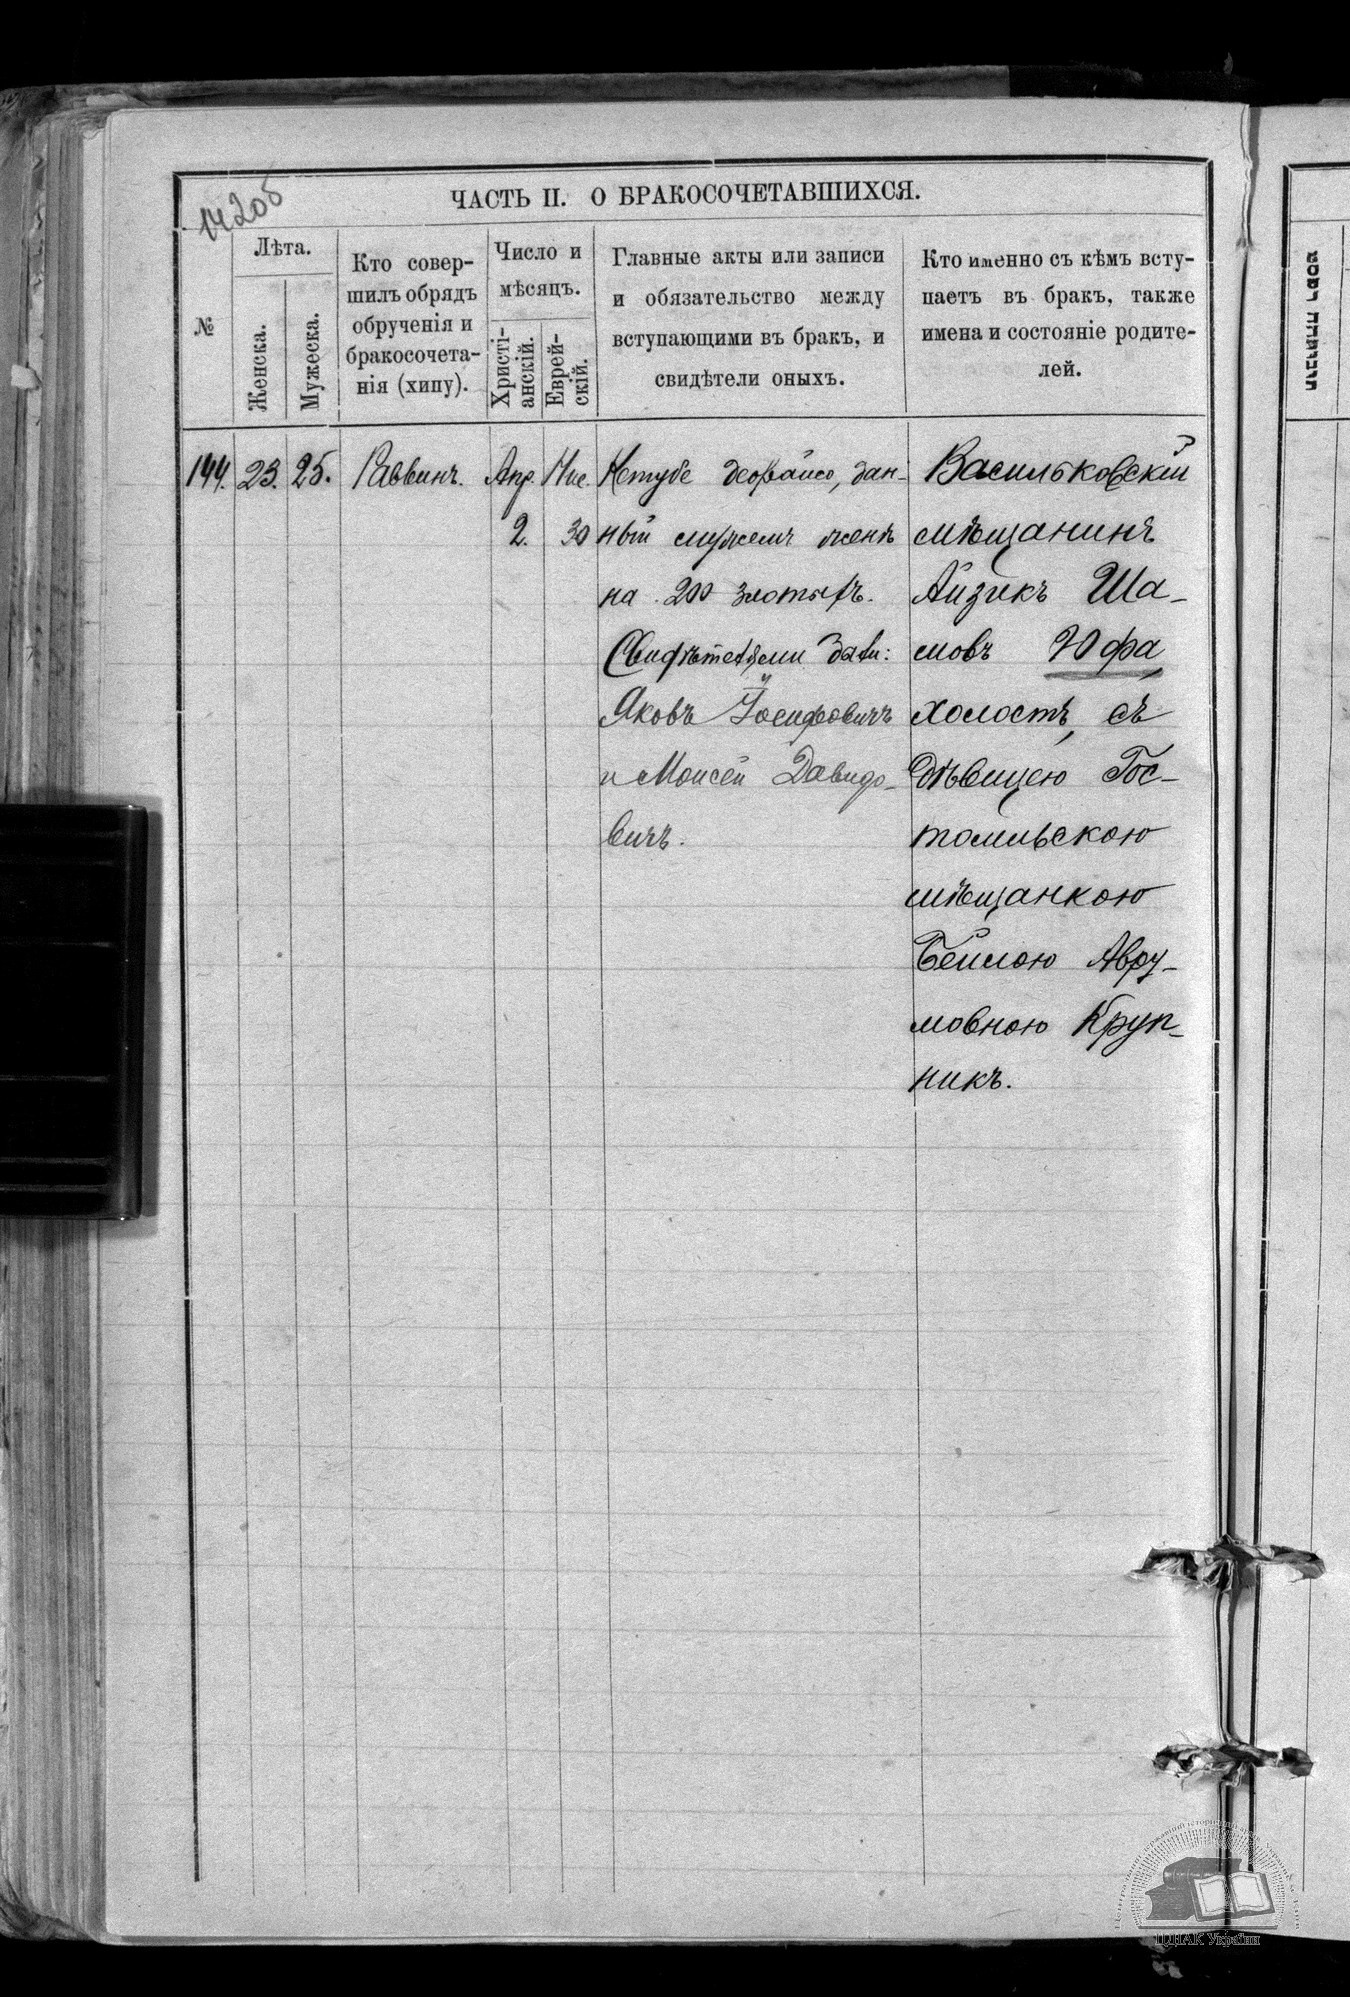 ЧАСТЬ II. О БРАКОСОЧЕТАВШИХСЯ.
№
Лѣта.
Женска.
Мужеска.
Кто совер-
шилъ обрядъ
обрученія и
бракосочета-
нія (хипу).
Число и
мѣсяцъ.
Христі-
анскій.
Еврей-
скій.
Главные акты или записи
и обязательство между
вступающими въ бракъ, и
свидѣтели оныхъ.
Кто именно съ кѣмъ всту-
паетъ въ бракъ, также
имена и состояніе родите-
лей.
144. 23. 25. Раввинъ. Апр. Нис.
2. 30
Ктубе деорайсо, дан-
ный мужемъ женѣ
на 200 злотыхъ.
Свидѣтелями были:
Яковъ Іосифовичъ
и Моисей Давидо-
вичъ.
Васильковскій
мѣщанинъ
Айзикъ Ша-
мовъ Юфа,
холостъ, съ
дѣвицею Гос-
томильскою
мѣщанкою
Бейлою Авру-
мовною Круп-
никъ.
ЦДІАК України